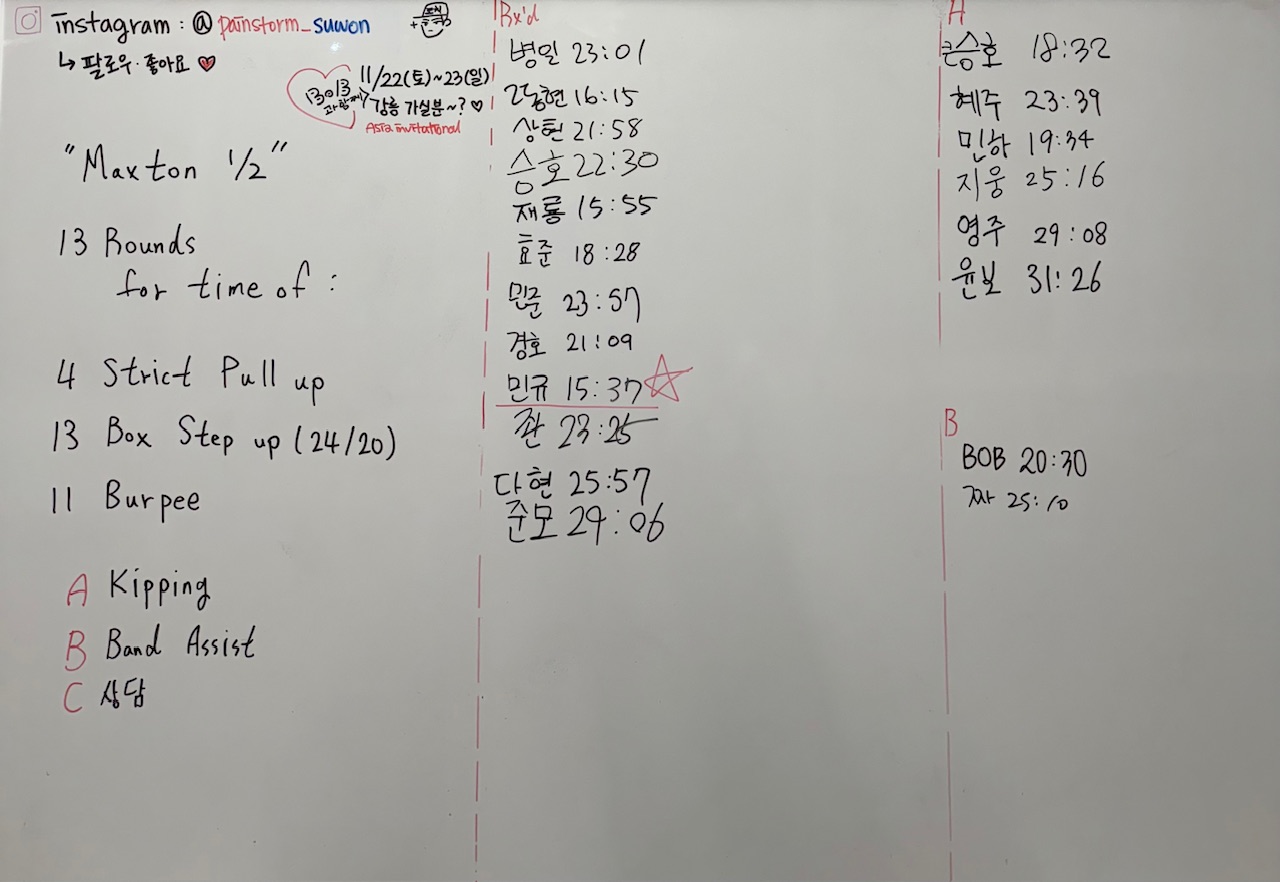 instagram : @ painstorm_suwon
↳ 팔로우·좋아요 ♥
11/22(토)~23(일)
강릉 가실분~? ♡
Asia invitational
"Maxton 1/2"
13 Rounds
for time of :
4 Strict Pull up
13 Box Step up (24/20)
11 Burpee
A Kipping
B Band Assist
C 상담
Rx'd
병일 23:01
16:15
상현 21:58
승호 22:30
재룡 15:55
효준 18:28
민준 23:57
경호 21:09
민규 15:37 ☆
좐 23:25
다현 25:57
준모 29:06
A
큰승호 18:32
혜주 23:39
민하 19:34
지웅 25:16
영주 29:08
윤보 31:26
B
BOB 20:30
짜 25:10